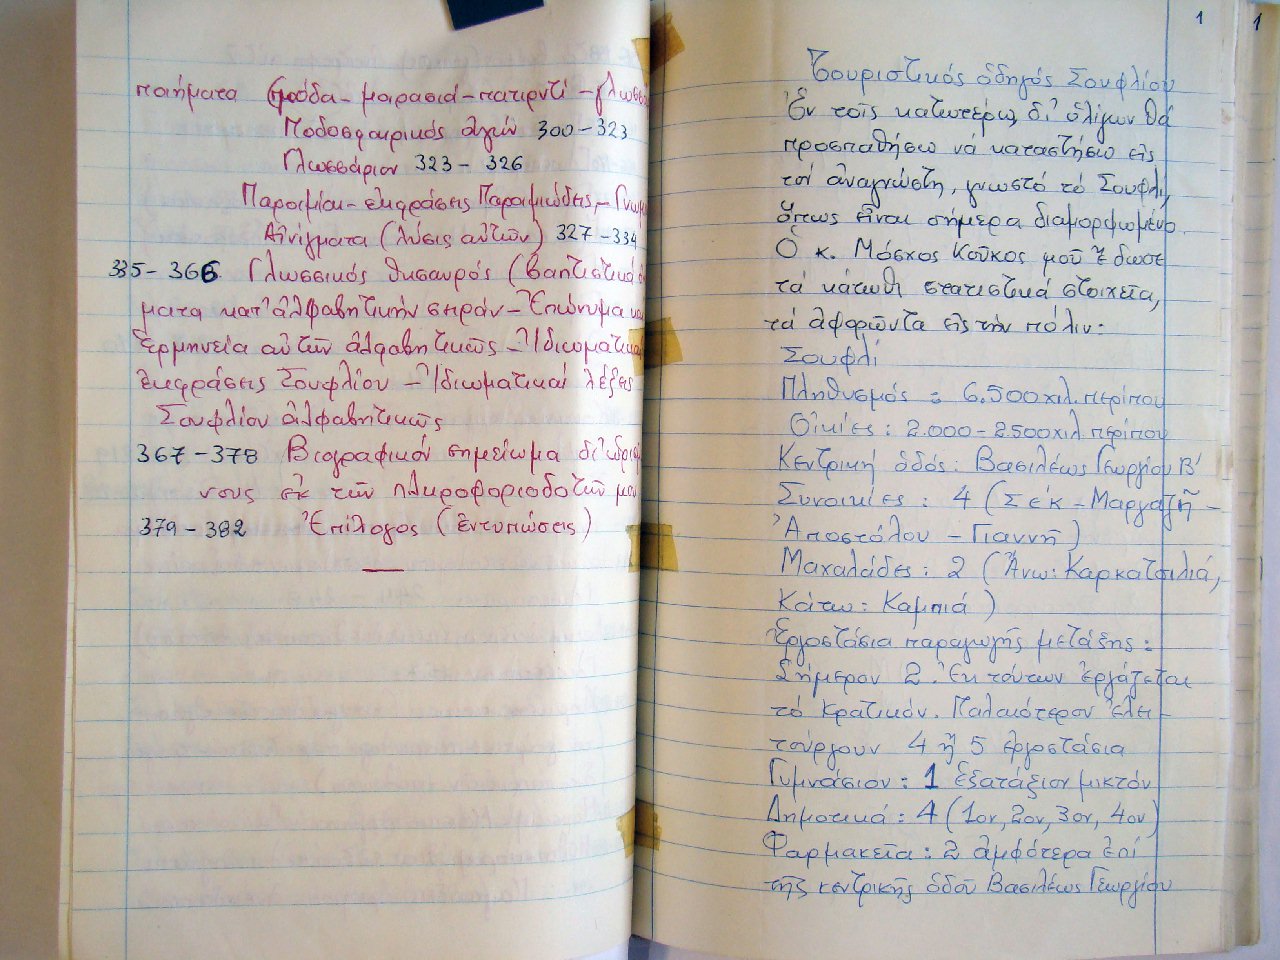 ποιήματα (μόδα - μοιρασιά - πατιρντί - γλωσσ
Ποδοσφαιρικός αγών 300 - 323
Γλωσσάριον 323 - 326
Παροιμίαι - ἐκφράσεις Παροιμιώδεις, - Γνωμ
Αἰνίγματα (λύσις αὐτῶν) 327 - 334
335 - 366 Γλωσσικός θησαυρός (βαπτιστικά
ματα κατ' ἀλφαβητικήν σειράν - Ἐπώνυμα κα
ἑρμηνεία αὐτῶν ἀλφαβητικῶς - Ἰδιωματικαί
ἐκφράσεις Σουφλίου - Ἰδιωματικαί λέξεις
Σουφλίου ἀλφαβητικῶς
367 - 378 Βιογραφικόν σημείωμα δι'
νους ἐκ τῶν πληροφοριοδοτῶν μου
379 - 382 Ἐπίλογος (ἐντυπώσεις)
1
1
Τουριστικός ὁδηγός Σουφλίου
Ἐν τοῖς κατωτέρω, δι' ὀλίγων θά
προσπαθήσω νά καταστήσω εἰς
τόν ἀναγνώστη, γνωστό τό Σουφλί,
ὅπως εἶναι σήμερα διαμορφωμένο.
Ὁ κ. Μόσχος Κοῦκος μοῦ ἔδωσε
τά κάτωθι στατιστικά στοιχεῖα,
τά ἀφορῶντα εἰς τήν πόλιν:
Σουφλί
Πληθυσμός : 6.500 χιλ. περίπου
Οἰκίες : 2.000 - 2500 χιλ. περίπου
Κεντρική ὁδός : Βασιλέως Γεωργίου Β'
Συνοικίες : 4 (Σέκ - Μαργαζῆ -
Ἀποστόλου - Γιαννῆ)
Μαχαλάδες : 2 (Ἄνω : Καρκατσιλιά,
Κάτω : Καμπιά)
Ἐργοστάσια παραγωγῆς μετάξης :
Σήμερον 2. Ἐκ τούτων ἐργάζεται
τό κρατικόν. Παλαιότερον ἐλει-
τούργουν 4 ἤ 5 ἐργοστάσια
Γυμνάσιον : 1 ἑξατάξιον μικτόν
Δημοτικά : 4 (1ον, 2ον, 3ον, 4ον)
Φαρμακεῖα : 2 ἀμφότερα ἐπί
τῆς κεντρικῆς ὁδοῦ Βασιλέως Γεωργίου